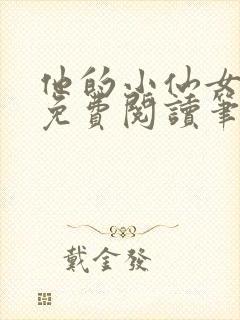 他的小仙女
免費閱讀筆
戴金發